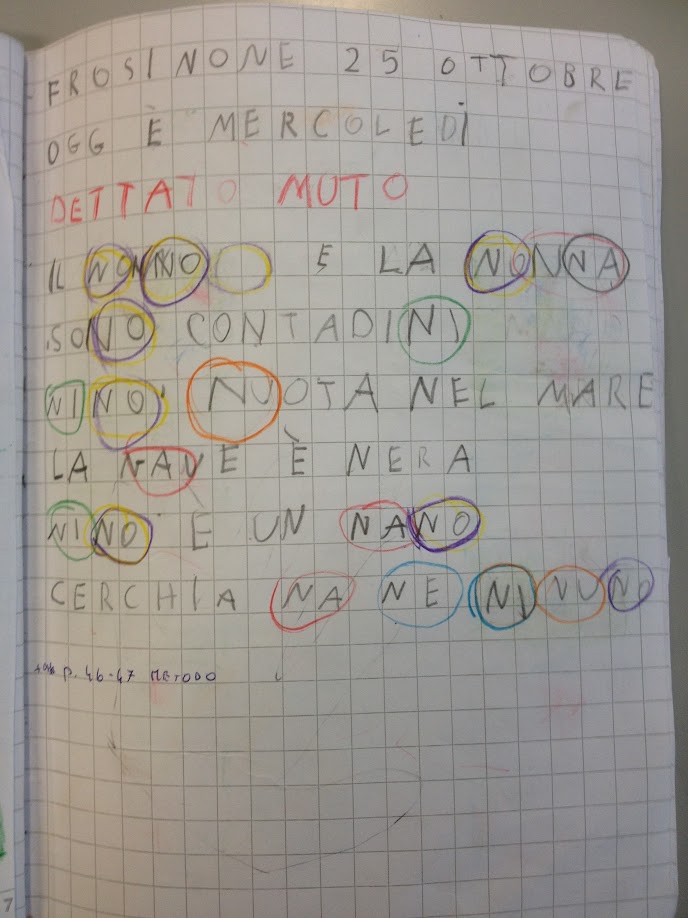 FROSINONE 25 OTTOBRE
OGG È MERCOLEDÌ
DETTATO MUTO
IL NONNO E LA NONNA
SONO CONTADINI
NINO NUOTA NEL MARE
LA NAVE È NERA
NINO È UN NANO
CERCHIA NA NE NI NU NO
p. 46-47 METODO
7